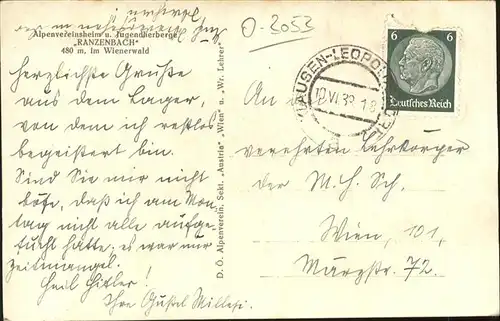 Alpenvereinsheim u. Jugendherberge
"RANZENBACH"
480 m, im Wienerwald
herzlichste Grüße
aus dem Lager,
von dem ich restlos
begeistert bin.
Sind Sie mir nicht
böse, daß ich am Mon-
tag nicht alle aufge-
sucht hatte; es war nur
Zeitmangel.
Heil Hitler!
Ihre Gustel
D. Ö. Alpenverein, Sekt. „Austria" „Wien" u. „Wr. Lehrer"
O-3053
KLAUSEN-LEOPOLDSDORF
VI.39
6 6
Deutsches Reich
An den
verehrten Lehrkörper
der M. H. Sch.
Wien, 101,
Märzstr. 72.